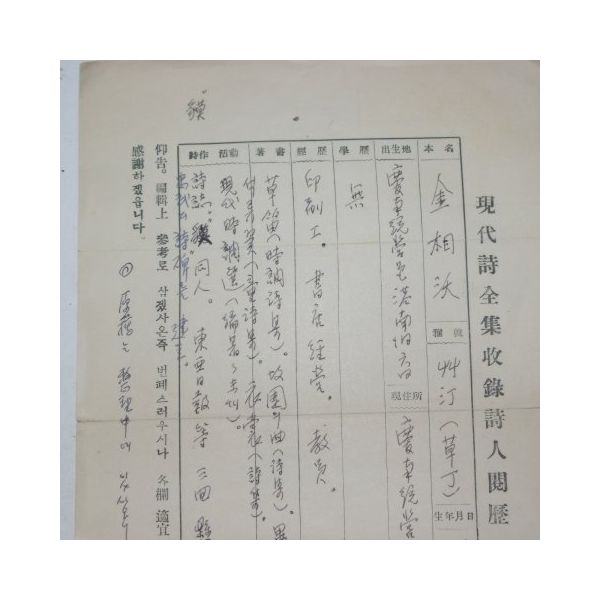 現代詩全集收錄詩人閱歷
本名
金相沃
雅號
艸汀 (草丁)
生年月日
出生地
慶南統營邑港南洞六
現住所
慶南統營
學歷
無
經歷
印刷工。書店經營。敎員。
著書
草笛 (時調詩集)。故園의 曲 (詩集)。異
(童詩集)。衣裳 (詩集)。
現代時調選 (編著、未刊)。
詩作活動
詩誌 "貘" 同人。東亞日報等 三回 縣
詩碑를 建立。
"貘"
仰告。編輯上 參考로 삼겠사온즉 번폐스러우시나 各欄 適宜
感謝하겠읍니다。
整理中에